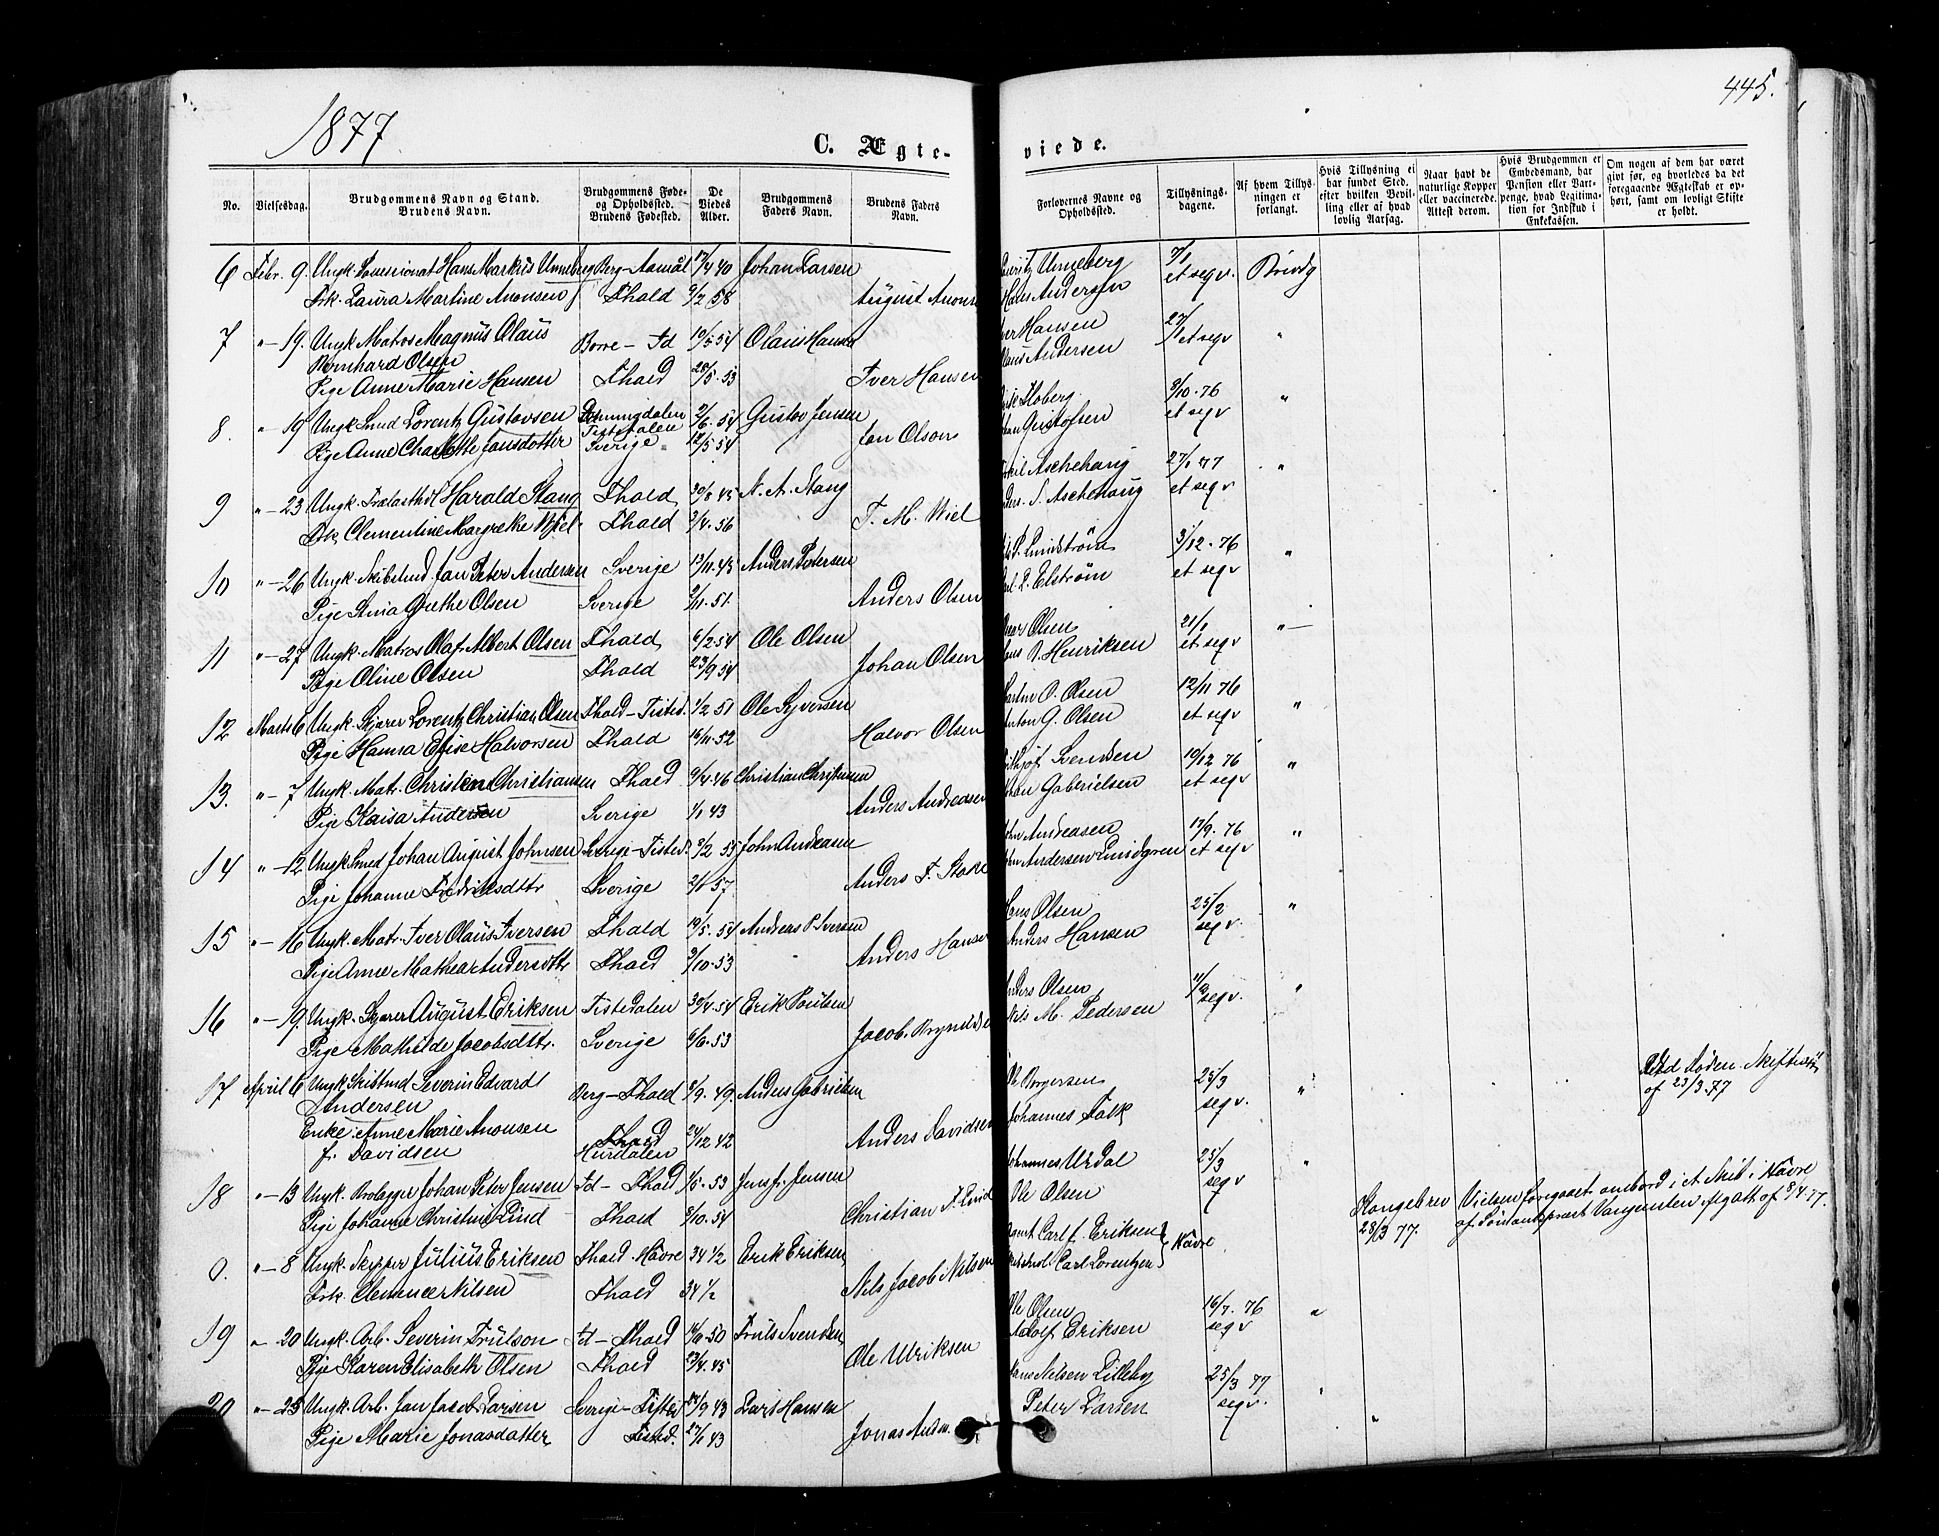 1877
445.
C. Ægte-
viede.
No.
Vielsesdag.
Brudgommens Navn og Stand.
Brudens Navn.
Brudgommens Føde-
og Opholdssted.
Brudens Fødested.
De
Viedes
Alder.
Brudgommens
Faders Navn.
Brudens Faders
Navn.
Forlovernes Navne og
Opholdssted.
Tillysnings-
dagene.
Af hvem Tillys-
ningen er
forlangt.
Hvis Tillysning ei
har fundet Sted,
efter hvilken Bevil-
ling eller af hvad
lovlig Aarsag.
Naar havt de
naturlige Kopper
eller vaccinerede.
Attest derom.
Hvis Brudgommen er
Embedsmand, har
Pension eller Vart-
penge, hvad Legitima-
tion for Indskud i
Enkekassen.
Om nogen af dem har været
givt før, og hvorledes da det
foregaaende Ægteskab er op-
hørt, samt om lovligt Skifte
er holdt.
6 Febr. 9. Ungk. Hans Markus Unneberg Berg - Aamål 17/4 40 Johan Larsen Unneberg 7/1
Frk. Laura Martine Anonsen Fhald 9/2 58 August Anons Hans Andersen et seqv. Brudg
7 "-19. Ungk. Matros Magnus Olaus Borre - Fd 19/5 54 Olaus Hansen Hansen 27/1 et seqv "
Bernhard Olsen Andersen
Pige Anne Marie Hansen Fhald 28/5. 53 Iver Hansen
8. "-19 Ungk. Smed Lorentz Gustavsen Tistedalen 2/6. 54 Gustav Jensen Floberg 8/10. 76 "
Pige Anne Charlotte Jansdotter Sverige 12/5 54 Jan Olson Gustafsen et seqv
9 "-23 Ungk. Harald Stang Fhald 30/8 45 N. A. Stang Aschehoug 27/1 77 "
Frk. Clementine Margrethe Wiel Fhald 3/4. 56 F. M. Wiel S. Aschehoug et seqv
10 "-26 Ungk. Jan Peter Andersen Sverige 13/11. 43 Anders Petersen Lindstrøm 3/12. 76 "
Pige Stina Grethe Olsen Sverige 2/11. 51. Anders Olsen Elstrøm et seqv
11 "-27 Ungk. Matros Olaf Albert Olsen Fhald 6/2 54 Ole Olsen Olsen 21/1 "
Pige Oline Olsen Fhald 23/9 54 Johan Olsen Henriksen et seqv
12 Marts 6 Ungk. Skjærer Lorentz Christian Olsen Fhald - Tisted. 1/2 51 Ole Syversen O. Olsen 12/11 76 "
Pige Hansa Elise Halvorsen Fhald 16/11. 52 Halvor Olsen Anton G. Olsen et seqv
13. "-7 Ungk. Matr. Christen Christiansen Fhald 9/4. 46 Christian Svendsen 10/12 76 "
Pige Kaisa Andersen Sverige 1/1 43 Anders Andreasen Gabrielsen et seqv
14 "-12 Ungk. Smed Johan August Johnsen Sverige - Tisted. 2/2 55 John Andreasen Andreasen 17/9. 76 "
Pige Johanne Fredriksdttr Sverige 57 Anders F. Andersen Lundgren et seqv
15 "-16 Ungk. Matr. Iver Olaus Iversen Fhald 19/5. 54 Anders P. Iversen Hans Olsen 25/2 "
Pige Anne Mathea Andersdttr Fhald 3/10. 53 Anders Hansen Anders Hansen seqv.
16 "-19 Ungk. Skjærer August Eriksen Tistedalen 30/4. 54 Erik Poulsen Anders Olsen seqv. "
Pige Mathilde Jacobsdttr. Sverige 6/6. 53 Jacob Nils M. Pedersen
17 April 6 Ungk. Severin Edvard Berg - Fhald 8/9. 49. Anders Gabrielsen Ole Borgersen 25/3 "
Andersen Johannes Falk seqv.
Enke. Anne Marie Anonsen Fhald 24/12 42 Anders Davidsen
f. Davidsen Hurdalen
af 23/3. 77
18 "-13 Ungk. Johan Peter Jensen Fd - Fhald 1/5. 53 Jens Jensen Johannes Urdal 25/3 "
Pige Johanne Christine Lind Fhald 8/10. 54 Christian F. Lind Ole Olsen seqv
0. "-8 Ungk. Skipper Julius Eriksen Fhald - Havre 34 1/2 Erik Eriksen Carl f. Eriksen Havre. Kongebrev Vielsen foregaaet ombord i et Skib i Havre
Frk. Clemence Nilsen Fhald 34 1/2 Nils Jacob Nilsen Carl Lorentzen 28/3 77. af Sømandspræst af 8/4 77.
19 "-20 Ungk. Arb. Severin Trulson Fd - Fhald 50 Truls Svendsen Ole Olsen 16/7. 76 "
Pige Karen Elisabeth Olsen Fhald 23/4. 45 Ole Ulriksen Adolf Eriksen seqv
20 "-25 Ungk. Arb. Jan Jacob Larsen Sverige - Tisted 43 Lars Hansen Nilsen Lilleby 25/3 77
Pige Marie Jonasdatter Tisted. 43 Jonas Peter Larsen seqv.